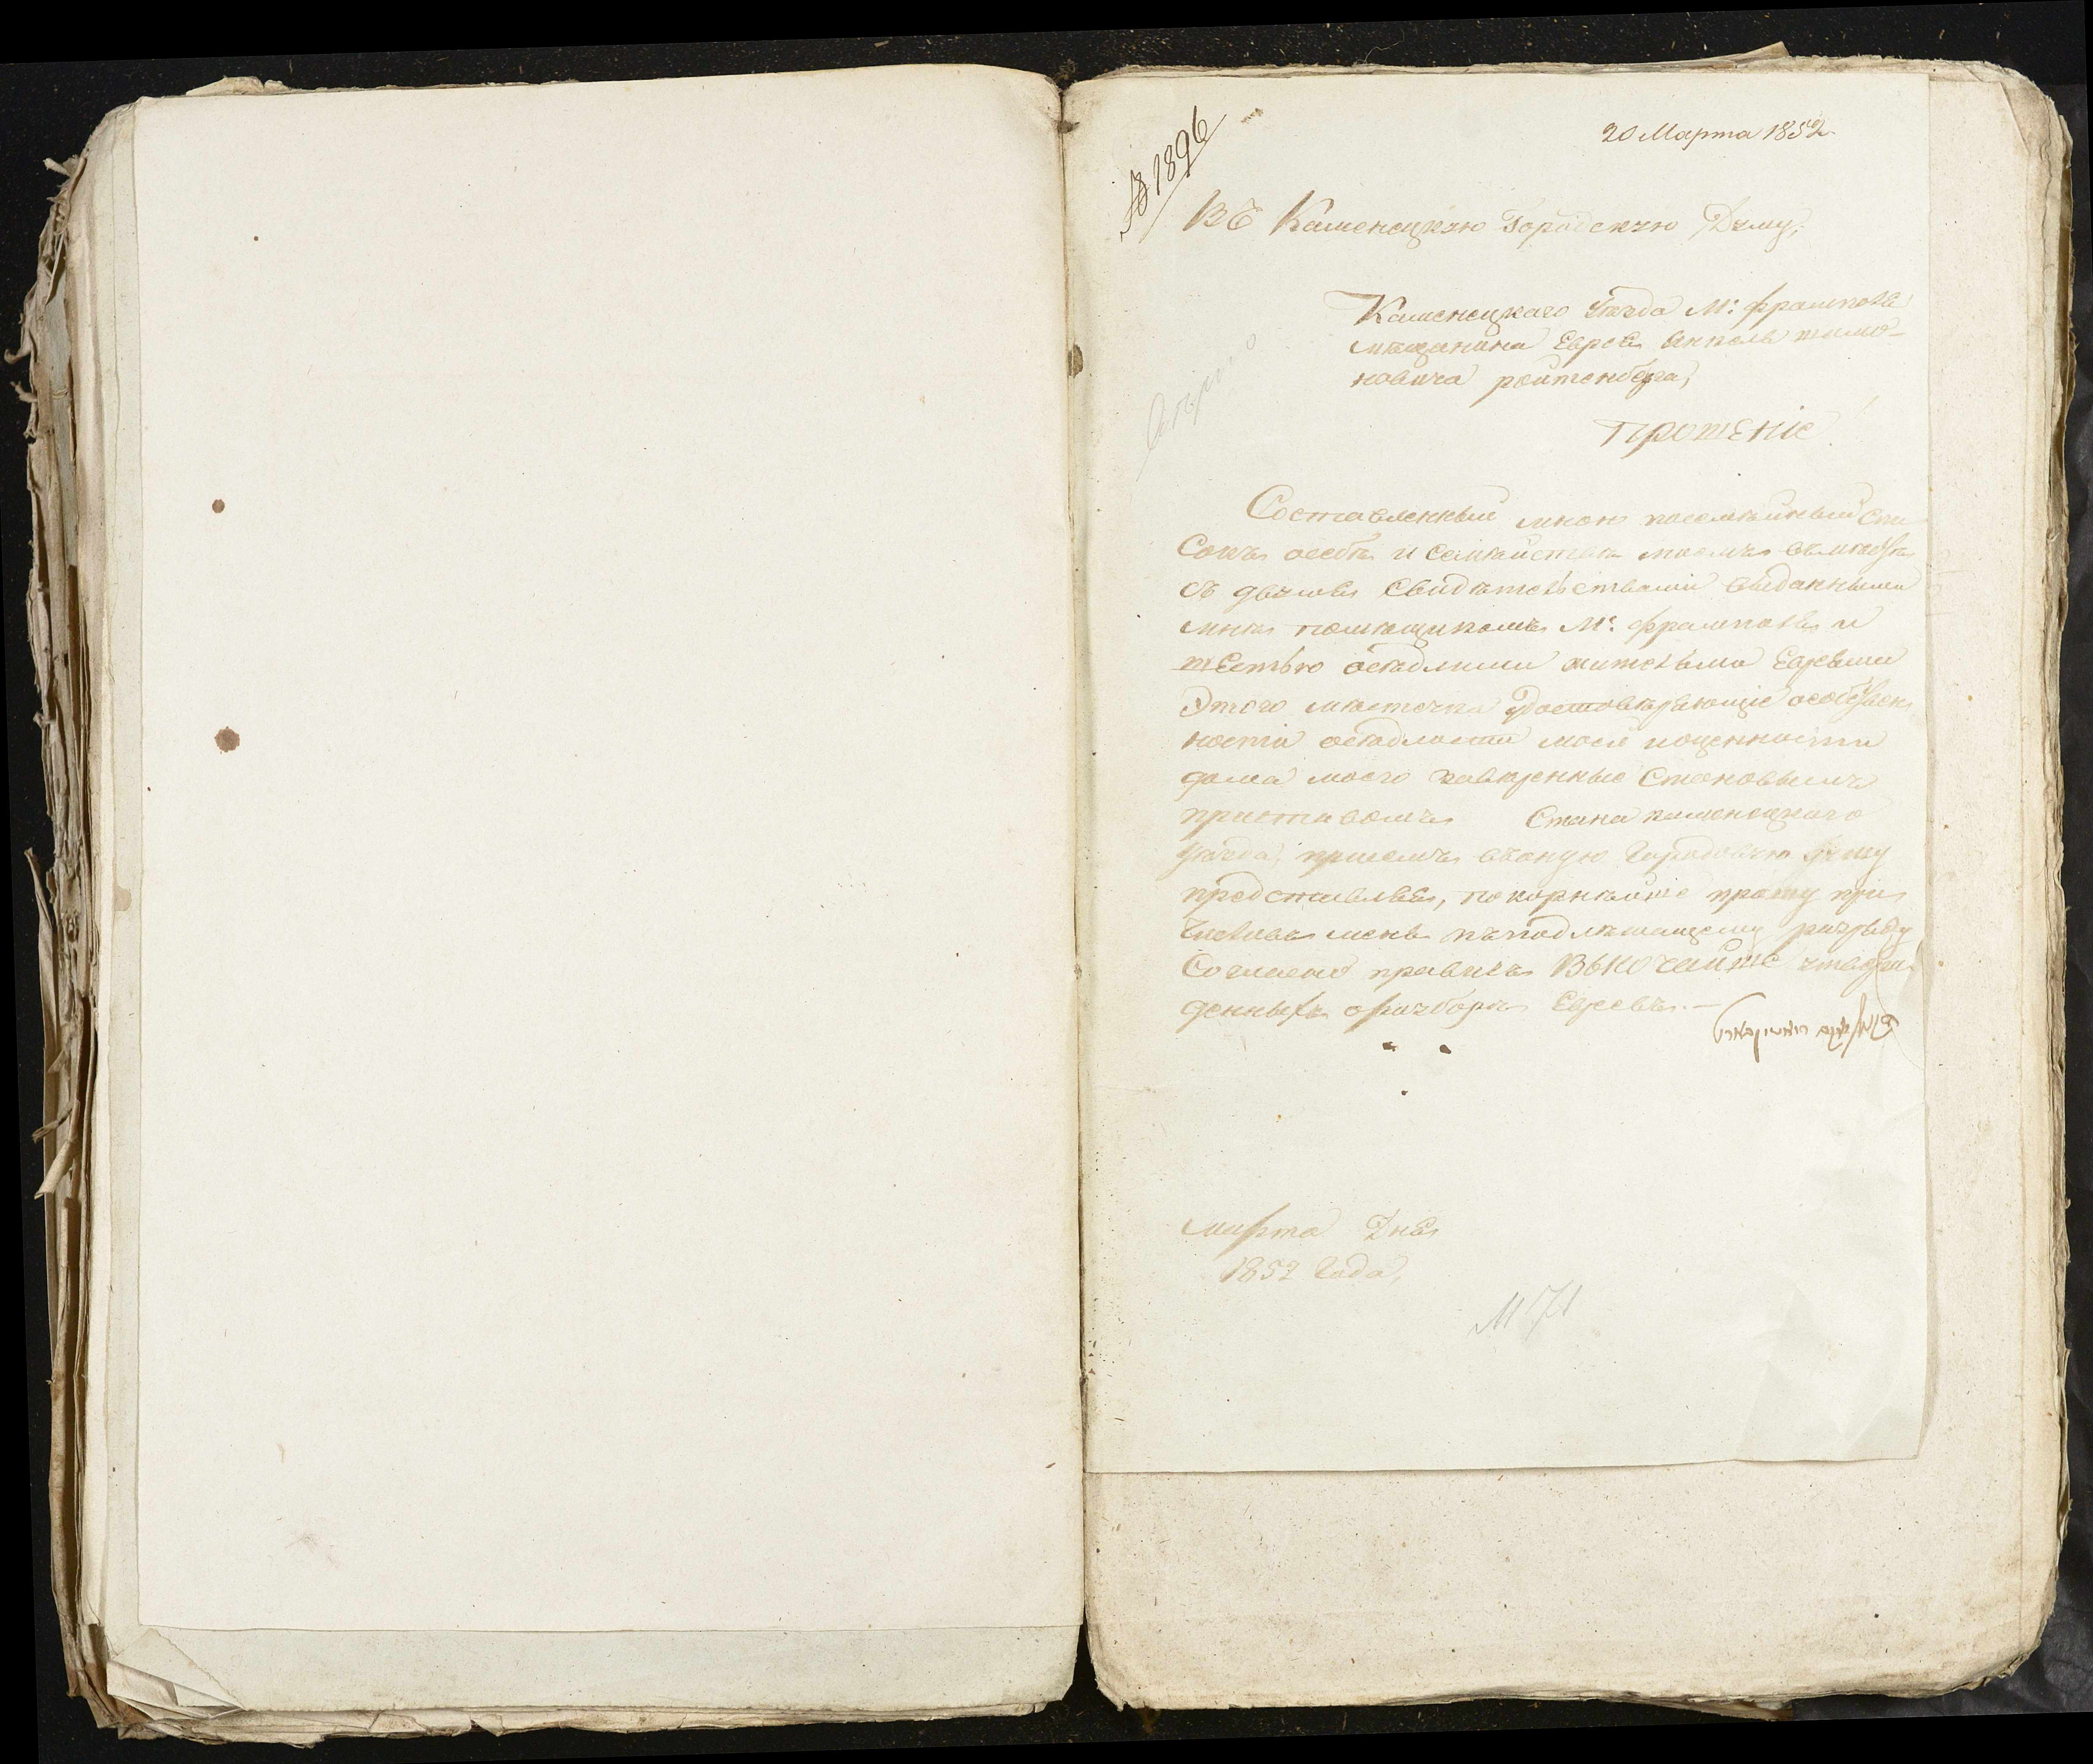 № 1896
20 Марта 1852
Въ Каменецкую Городскую Думу,
Каменецкаго Уѣзда М: Фрамполя
мѣщанина Еврея Анкель шимо-
новича ройтенберга,
Прошеніе!
Составленный мною посемѣйный спи
сокъ особѣ и семѣйствѣ моемъ вмѣстѣ
съ двумя Свидѣтельствами выданными
мнѣ помѣщикомъ М: Фрамполя и
шестью осѣдлыми жительми Евреями
Этого мѣстечка удостовѣряющіе о
ности осѣдлости моей и оценности
дома моего завѣренные Становымъ
приставомъ Стана каменецкаго
Уѣзда, присемъ въ оную Городовую Думу
представляя, покорнѣйше прошу при
числить меня къ подлежащему разряду
Согласно правилъ Высочайше утверж
денныхъ о разборѣ Евреевъ.—
марта Дня
1852 Года,
№ 71